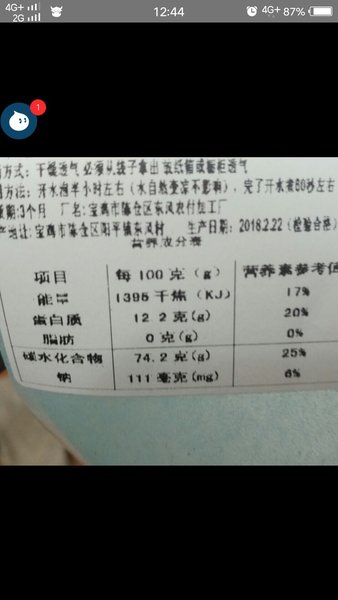 4G+
2G
12:44
4G+ 87%
1
方式：干燥透气 必须从袋子拿出 装纸箱或橱柜透气
方法：开水泡半小时左右（水自然变凉不影响），完了开水煮60秒左右
期:3个月 厂名：宝鸡市陈仓区东风农付加工厂
产地址：宝鸡市陈仓区阳平镇东风村 生产日期：2018.2.22（检验合格）
营养成分表
项目 每100克（g） 营养素参考值
能量 1395千焦（KJ） 17%
蛋白质 12.2克(g) 20%
脂肪 0克(g) 0%
碳水化合物 74.2克(g) 25%
钠 111毫克(mg) 6%